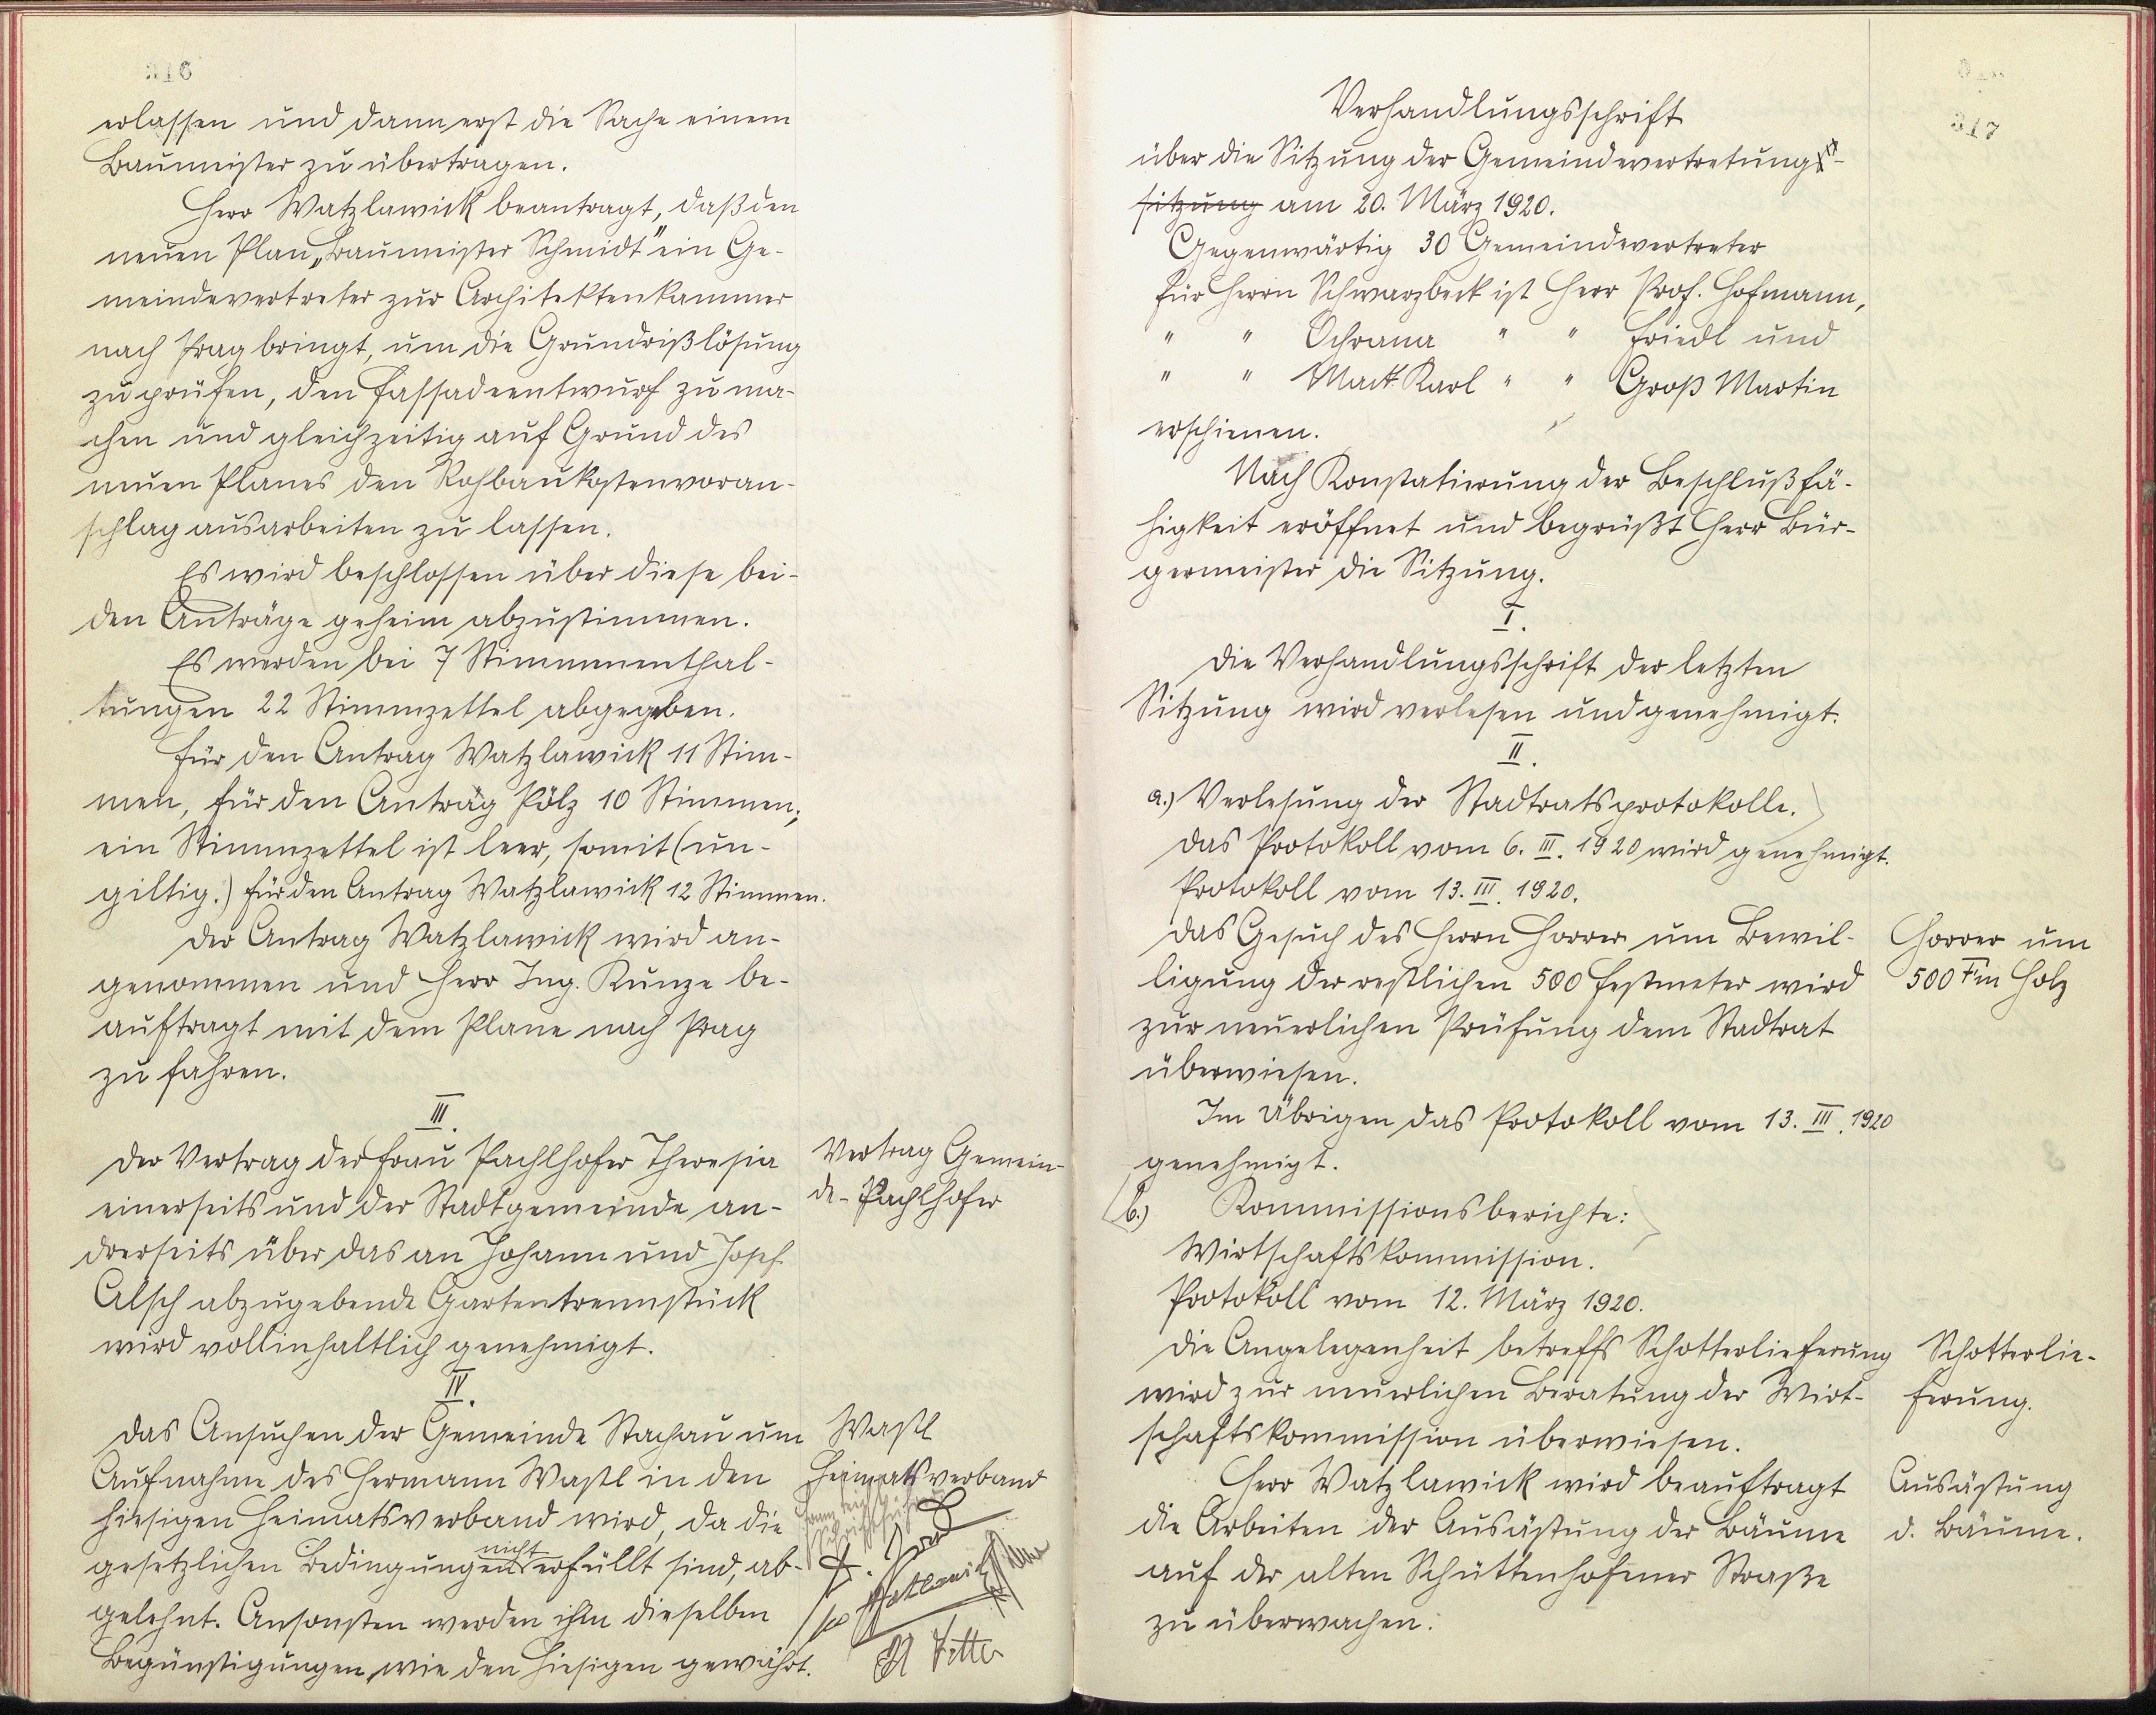 316
erlassen und dann erst die Sache einem
Baumeister zu übertragen.
Herr Watzlawick beantragt, daß den
neuen Plan „Baumeister Schmidt" ein Ge-
meindevertreter zur Architektenkammer
nach Prag bringt, um die Grundrißlösung
zu prüfen, den Fassadeentwurf zu ma-
chen und gleichzeitig auf Grund des
neuen Planes den Rohbaukostenvoran-
schlag ausarbeiten zu lassen.
Es wird beschlossen über diese bei-
den Anträge geheim abzustimmen.
Es werden bei 7 Stimmenthal-
tungen 22 Stimmzettel abgegeben.
Für den Antrag Watzlawick 11 Stim-
men, für den Antrag Pölz 10 Stimmen;
ein Stimmzettel ist leer, somit (un-
giltig.) für den Antrag Watzlawick 12 Stimmen.
Der Antrag Watzlawick wird an-
genommen und Herr Ing. Kunze be-
auftragt mit dem Plane nach Prag
zu fahren.
III.
Der Vertrag der Frau Pachlhofer Theresia
einerseits und der Stadtgemeinde an-
drerseits über das an Johann und Josef
Alsch abzugebende Gartentrennstück
wird vollinhaltlich genehmigt.
Vertrag Gemein-
de-Pachlhofer
IV.
Das Ansuchen der Gemeinde Stachau um
Aufnahme des Hermann Wastl in den
hiesigen Heimatsverband wird, da die
gesetzlichen Bedingungen nicht erfüllt sind, ab-
gelehnt. Ansonsten werden ihm dieselben
Begünstigungen, wie den Hiesigen gewährt.
Wastl
Heimatsverband
Watzlawick
317
Verhandlungsschrift
über die Sitzung der Gemeindevertretungs-
sitzung am 20. März 1920.
Gegenwärtig 30 Gemeindevertreter
für Herrn Schwarzbeck ist Herr Prof. Hofmann,
" " Ochrana " " Friedl und
" " Mack Karl " " Groß Martin
erschienen.
Nach Konstatierung der Beschlußfä-
higkeit eröffnet und begrüßt Herr Bür-
germeister die Sitzung.
I.
Die Verhandlungsschrift der letzten
Sitzung wird verlesen und genehmigt.
II.
a.) Verlesung der Stadtratsprotokolle.
Das Protokoll vom 6. III. 1920 wird genehmigt.
Protokoll vom 13. III. 1920.
Das Gesuch des Herrn Horrer um Bewil-
ligung der restlichen 500 Festmeter wird
zur neuerlichen Prüfung dem Stadtrat
überwiesen.
Horrer um
500 Fm Holz
Im Übrigen das Protokoll vom 13. III. 1920
genehmigt.
b.) Kommissionsberichte:
Wirtschaftskommission.
Protokoll vom 12. März 1920.
Die Angelegenheit betreffs Schotterlieferung
wird zur neuerlichen Beratung der Wirt-
schaftskommission überwiesen.
Schotterlie-
ferung.
Herr Watzlawick wird beauftragt
die Arbeiten der Ausästung der Bäume
auf der alten Schüttenhofener Straße
zu überwachen.
Ausästung
d. Bäume.